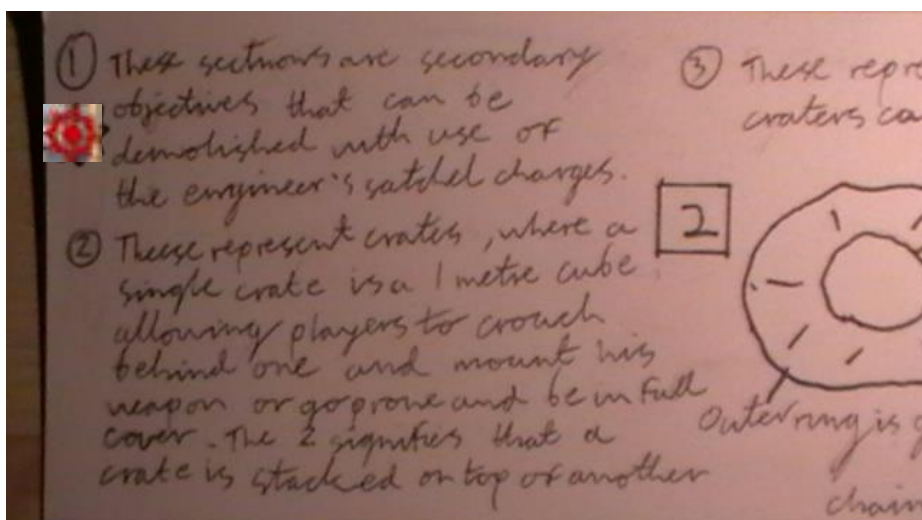 ① These sections are secondary
objectives that can be
demolished with use of
the engineer's satchel charges.
② Theese represent crates, where a
single crate is a 1 metre cube
allowing players to crouch
behind one and mount his
weapon or go prone and be in full
cover. The 2 signifies that a
crate is stacked on top of another
③ These repre
craters ca
2
Outer ring is g
chain